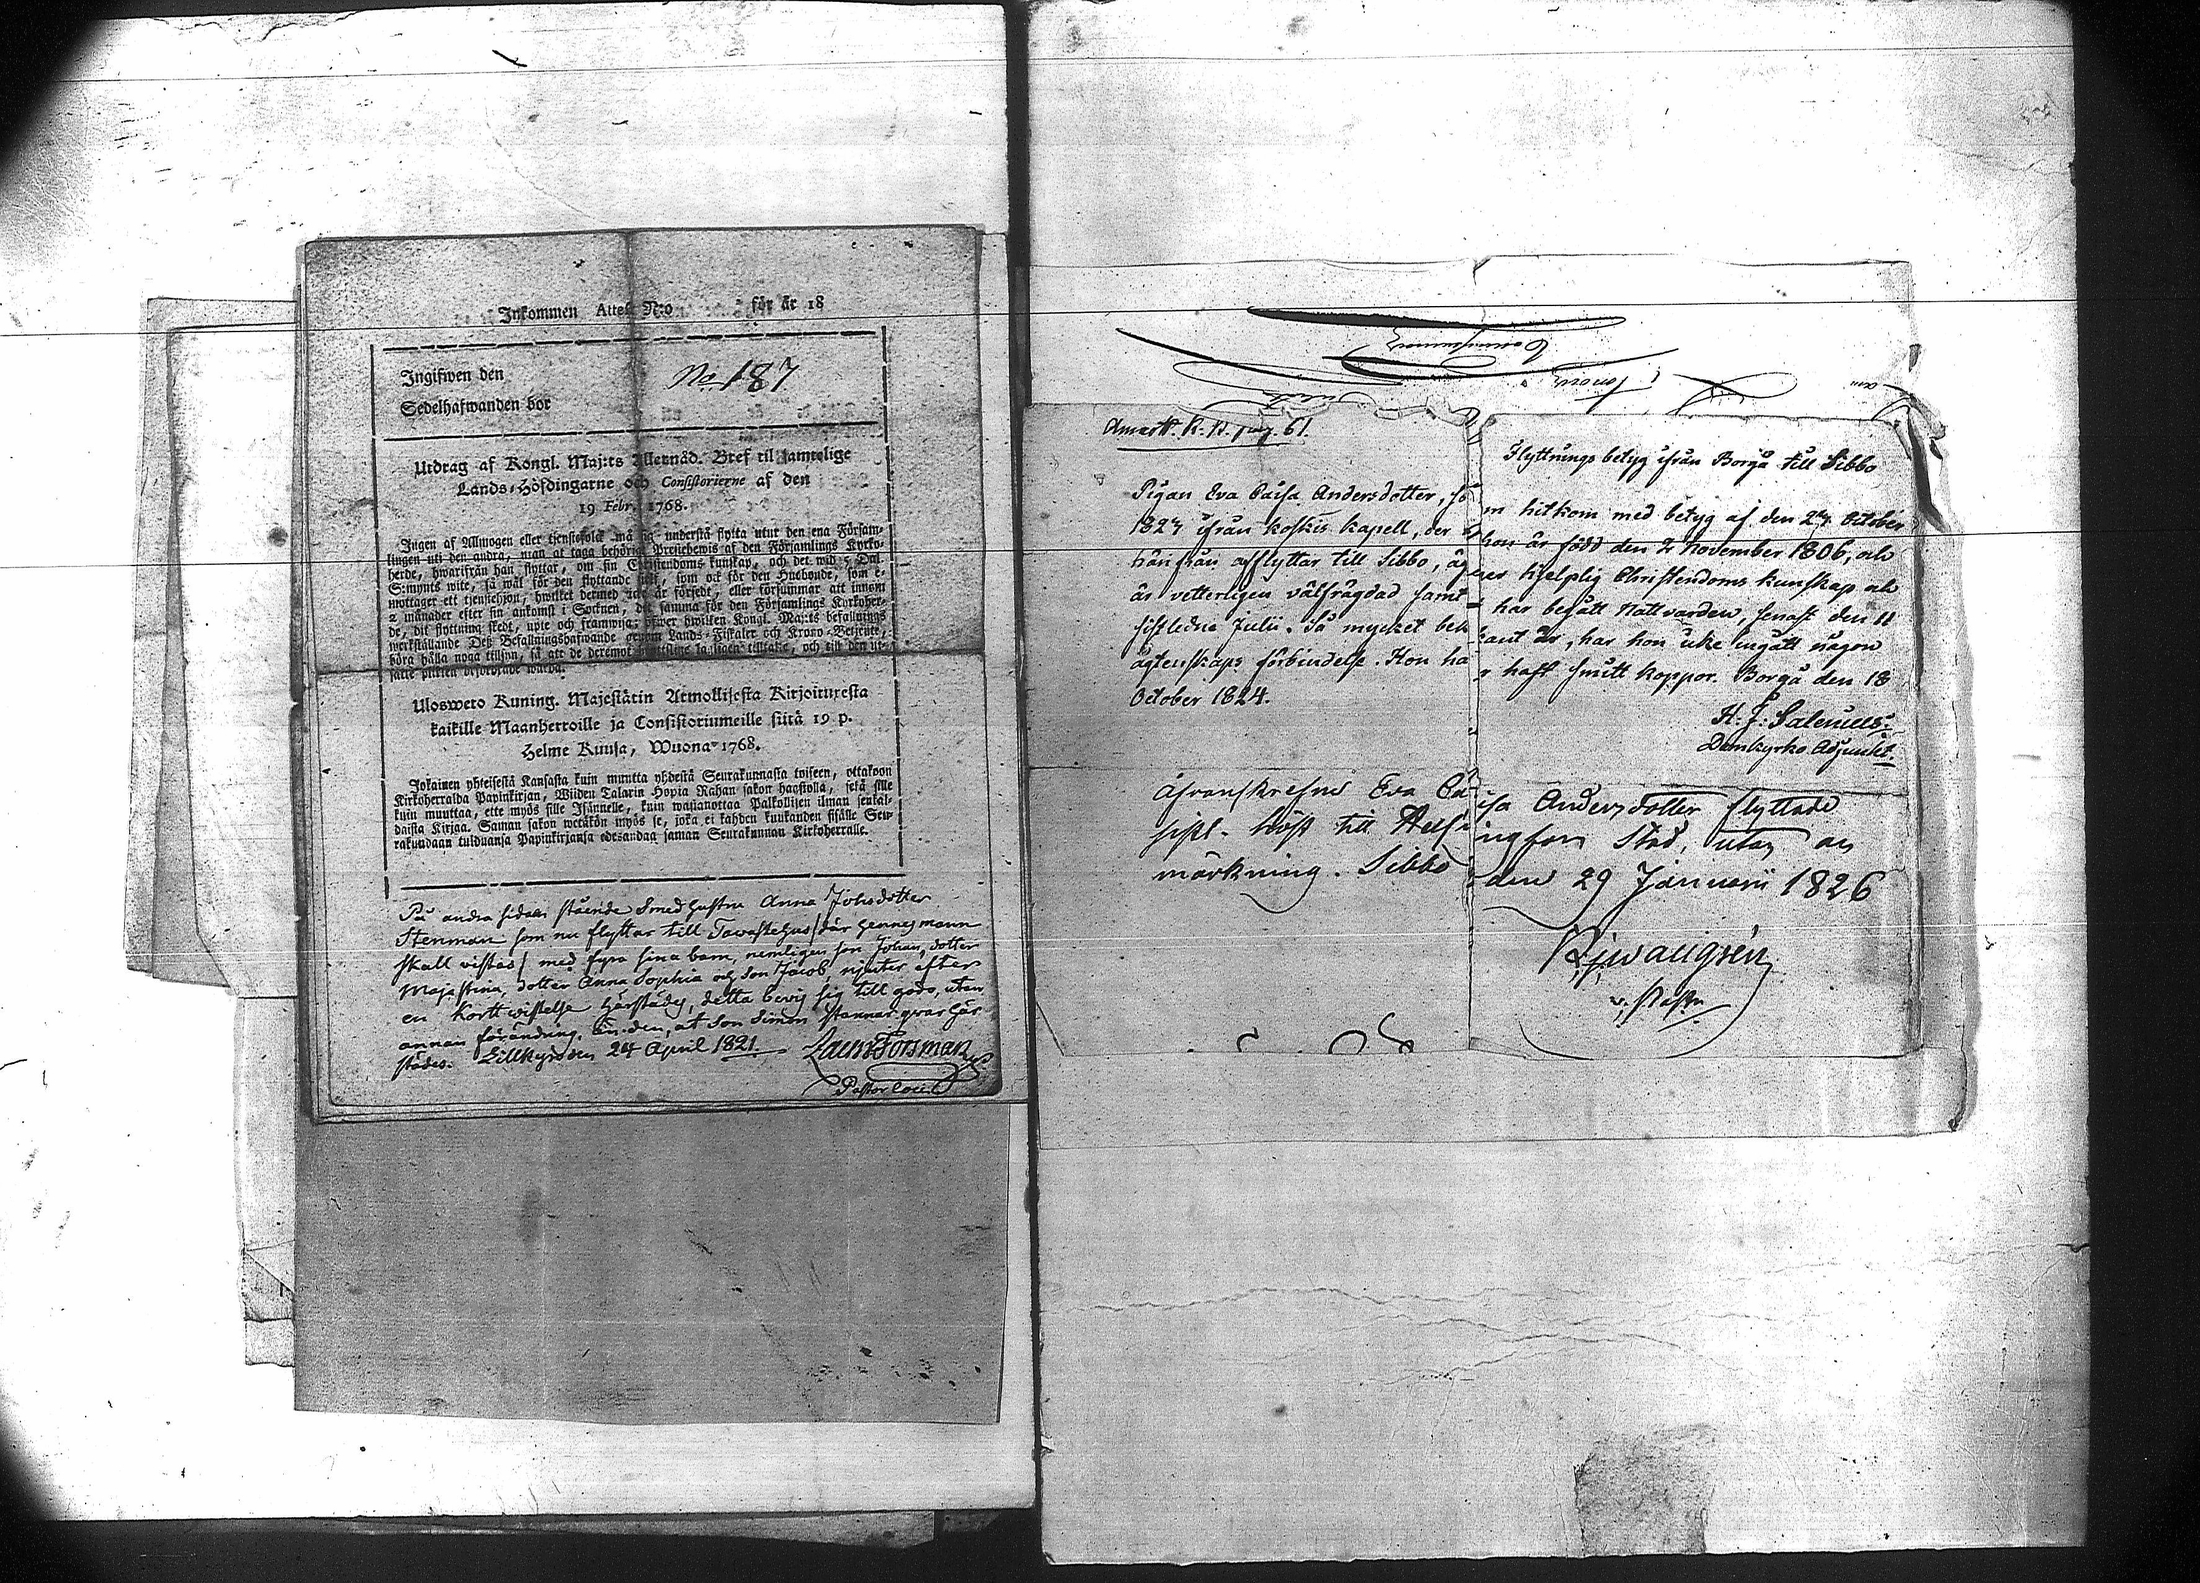 Inkommen Attest N:o för år 18
Ingifwen den
No 187
Sedelhafwanden bor
Utdrag af Kongl. Maj:ts Allernåd. Bref til samtelige
Lands-Höfdingarne och Consistorierne af den
19 Febr. 1768.
Ingen af Allmogen eller tjenstefolck må sig understå flytta utur den ena Försam-
lingen uti den andra, utan at taga behörigt Prestebewis af den Församlings Kyrko-
herde, hwarifrån han flyttar, om sin Christendoms kunskap, och det wid 5 Dal.
S:mynts wite, så wäl för den flyttande sielf, som ock för den Husbonde, som e-
mottager ett tjenstehjon, hwilket dermed icke är försedt, eller försummar att innom
2 månader efter sin ankomst i Socknen, det samma för den Församlings Kyrkoher-
de, dit flyttning skedt, upte och framwisa; öfwer hwilken Kongl. Maj:ts befallnings
werkställande Deß Befallningshafwande genom Lands-Fiskaler och Krono-Betjente,
böra hålla noga tillsyn, så att de deremot brottslige lagligen tilltalte, och till den ut-
satte plikten befordrade warda.
Ulosweto Kuning. Majestätin Armollisesta Kirjoituxesta
kaikille Maanherroille ja Consistoriumeille siitä 19 p.
Helme Kuusa, Wuona 1768.
Jokainen yhteisestä Kansasta kuin muutta yhdestä Seurakunnasta toiseen, ottakoon
Kirkoherralda Papinkirjan, Wiiden Talarin Hopia Rahan sakon haastolla, sekä sille
kuin muuttaa, ette myös sille Isännelle, kuin wastanottaa Palkollisen ilman senkal-
daista Kirjaa. Saman sakon wetäkön myös se, joka ei kahden kuukauden sisälle Seu-
rakundaan tulduansa Papinkirjansa edesandaa saman Seurakunnan Kirkoherralle.
På andra sidan stående Smed hustru Anna Johsdotter
Stenman som nu flyttar till Tavastehus / där hennes mann
skall vistas / med fyra sina barn, nemligen son Johan, dotter
Maja Stina, dotter Anna Sophia och son Jacob njuter efter
en kort wistelse härstädes, detta bevis sig till godo, utan
annan förändring, än den, at son Simon stannar qvar här
städes. Lillkyro den 24 April 1821. Laurs Forsman
Pastor loci
Anart. K. B. pag. 61.
Flyttnings betyg ifrån Borgå till Sibbo
Pigan Eva Caisa Andersdotter, som hitkom med betyg af den 27 October
1827 ifrån Koskis kapell, der hon är född den 2 November 1806, och
härifrån afflyttar till Sibbo, äger hjelplig Christendoms kunskap och
är vetterligen välfrägdad samt har begått Nattvarden, senast den 11
sistledne Julii. Så mycket bekant är, har hon icke ingått någon
ägtenskaps förbindelse. Hon har haft smitt koppor. Borgå den 18
October 1824.
H. J:
Domkyrko Adjunct.
Åfvanskrefne Eva Caisa Andersdotter flyttade
sistl. höst till Helsingfors Stad, utan an
märkning. Sibbo den 29 Januarii 1826